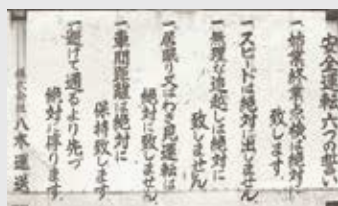 安全運転六つの誓い
一始業終業点検は絶対に
致します。
一スピードは絶対に出しません
一無理な追越しは絶対に
致しません
一居眠り又はわき見運転は
絶対に致しません
一車間距離は絶対に
保持致します
一避けて通るより先づ
絶対に停ります。
株式会社 八木運送